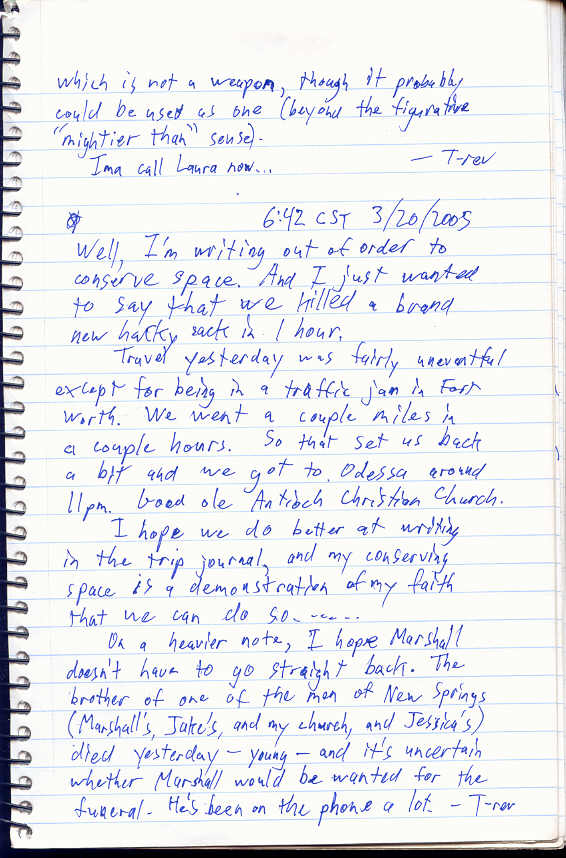 which is not a weapon, though it probably
could be used as one (beyond the figurative
"mightier than" sense).
Ima call Laura now...
— T-rev
6:42 CST 3/20/2005
Well, I'm writing out of order to
conserve space. And I just wanted
to say that we killed a brand
new hacky sack in 1 hour.
Travel yesterday was fairly uneventful
except for being in a traffic jam in Fort
Worth. We went a couple miles in
a couple hours. So that set us back
a bit and we got to Odessa around
11pm. Good ole Antioch Christian Church.
I hope we do better at writing
in the trip journal, and my conserving
space is a demonstration of my faith
that we can do so.......
On a heavier note, I hope Marshall
doesn't have to go straight back. The
brother of one of the men of New Springs
(Marshall's, Jake's, and my church, and Jessica's)
died yesterday – young – and it's uncertain
whether Marshall would be wanted for the
funeral. He's been on the phone a lot. – T-rev